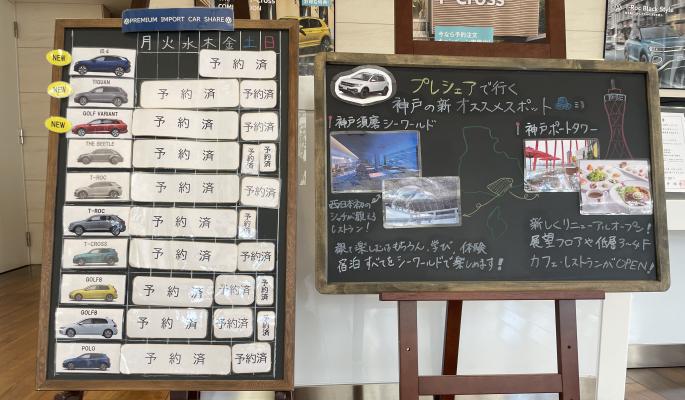 PREMIUM IMPORT CAR SHARE
月 火 水 木 金 土 日
NEW
ID.4
予約済
NEW
TIGUAN
予約済 予約済
NEW
GOLF VARIANT
予約済 予約済
THE BEETLE
予約済 予約済 予約済
T-ROC
予約済 予約済
T-ROC
予約済 予約済
T-CROSS
予約済 予約済
GOLF8
予約済 予約済 予約済
GOLF8
予約済 予約済 予約済
POLO
予約済 予約済
プレシェアで行く
神戸の新オススメスポット
神戸須磨シーワールド
西日本初の
シャチが観える
レストラン!
観て楽しむはもちろん、学び、体験
宿泊すべてをシーワールドで楽しめます!
神戸ポートタワー
新しくリニューアルオープン!
展望フロアや低層3~4F
カフェ・レストランがOPEN!
T-Cross
今なら予約注文
T-Roc Black Style